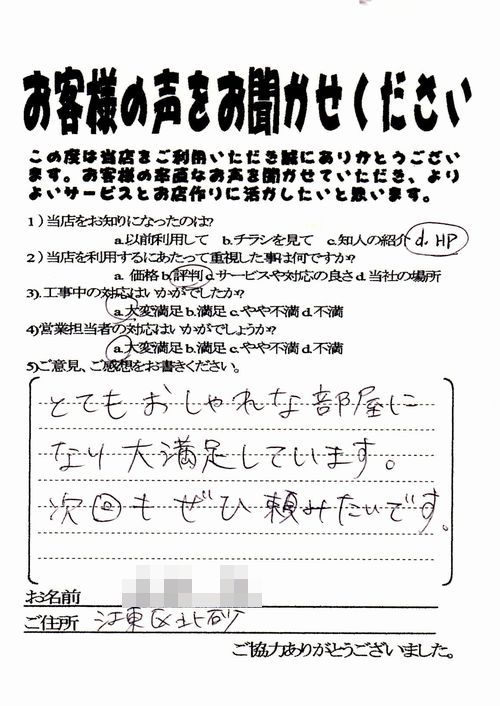 お客様の声をお聞かせください
この度は当店をご利用いただき誠にありがとうござい
ます。お客様の率直なお声を聞かせていただき、より
よいサービスとお店作りに活かしたいと思います。
1)当店をお知りになったのは?
a.以前利用して b.チラシを見て c.知人の紹介 d. HP
2)当店を利用するにあたって重視した事は何ですか?
a. 価格 b.評判 c.サービスや対応の良さ d.当社の場所
3).工事中の対応はいかがでしたか?
a.大変満足 b.満足 c.やや不満 d.不満
4)営業担当者の対応はいかがでしょうか?
a.大変満足 b.満足 c.やや不満 d.不満
5)ご意見、ご感想をお書きください。
とてもおしゃれな部屋に
なり大満足しています。
次回もぜひ頼みたいです。
お名前
ご住所 江東区北砂
ご協力ありがとうございました。